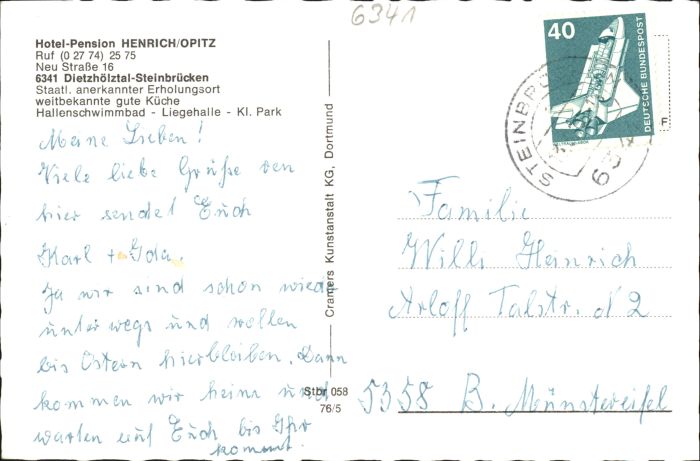 6341
Hotel-Pension HENRICH/OPITZ
Ruf (0 27 74) 25 75
Neu Straße 16
6341 Dietzhölztal-Steinbrücken
Staatl. anerkannter Erholungsort
weitbekannte gute Küche
Hallenschwimmbad - Liegehalle - Kl. Park
Meine Lieben!
Viele liebe Grüße von
hier sendet Euch
Karl + Ida.
Ja wir sind schon wieder
unterwegs und wollen
bis Ostern hierbleiben. Dann
kommen wir heim und
warten auf Euch bis Ihr
kommt.
Cramers Kunstanstalt KG, Dortmund
Stbr 058
76/5
40
DEUTSCHE BUNDESPOST
STEINBRÜ
F
Familie
Willi Heinrich
Arloff Talstr. N 2
5358 B. Münstereifel